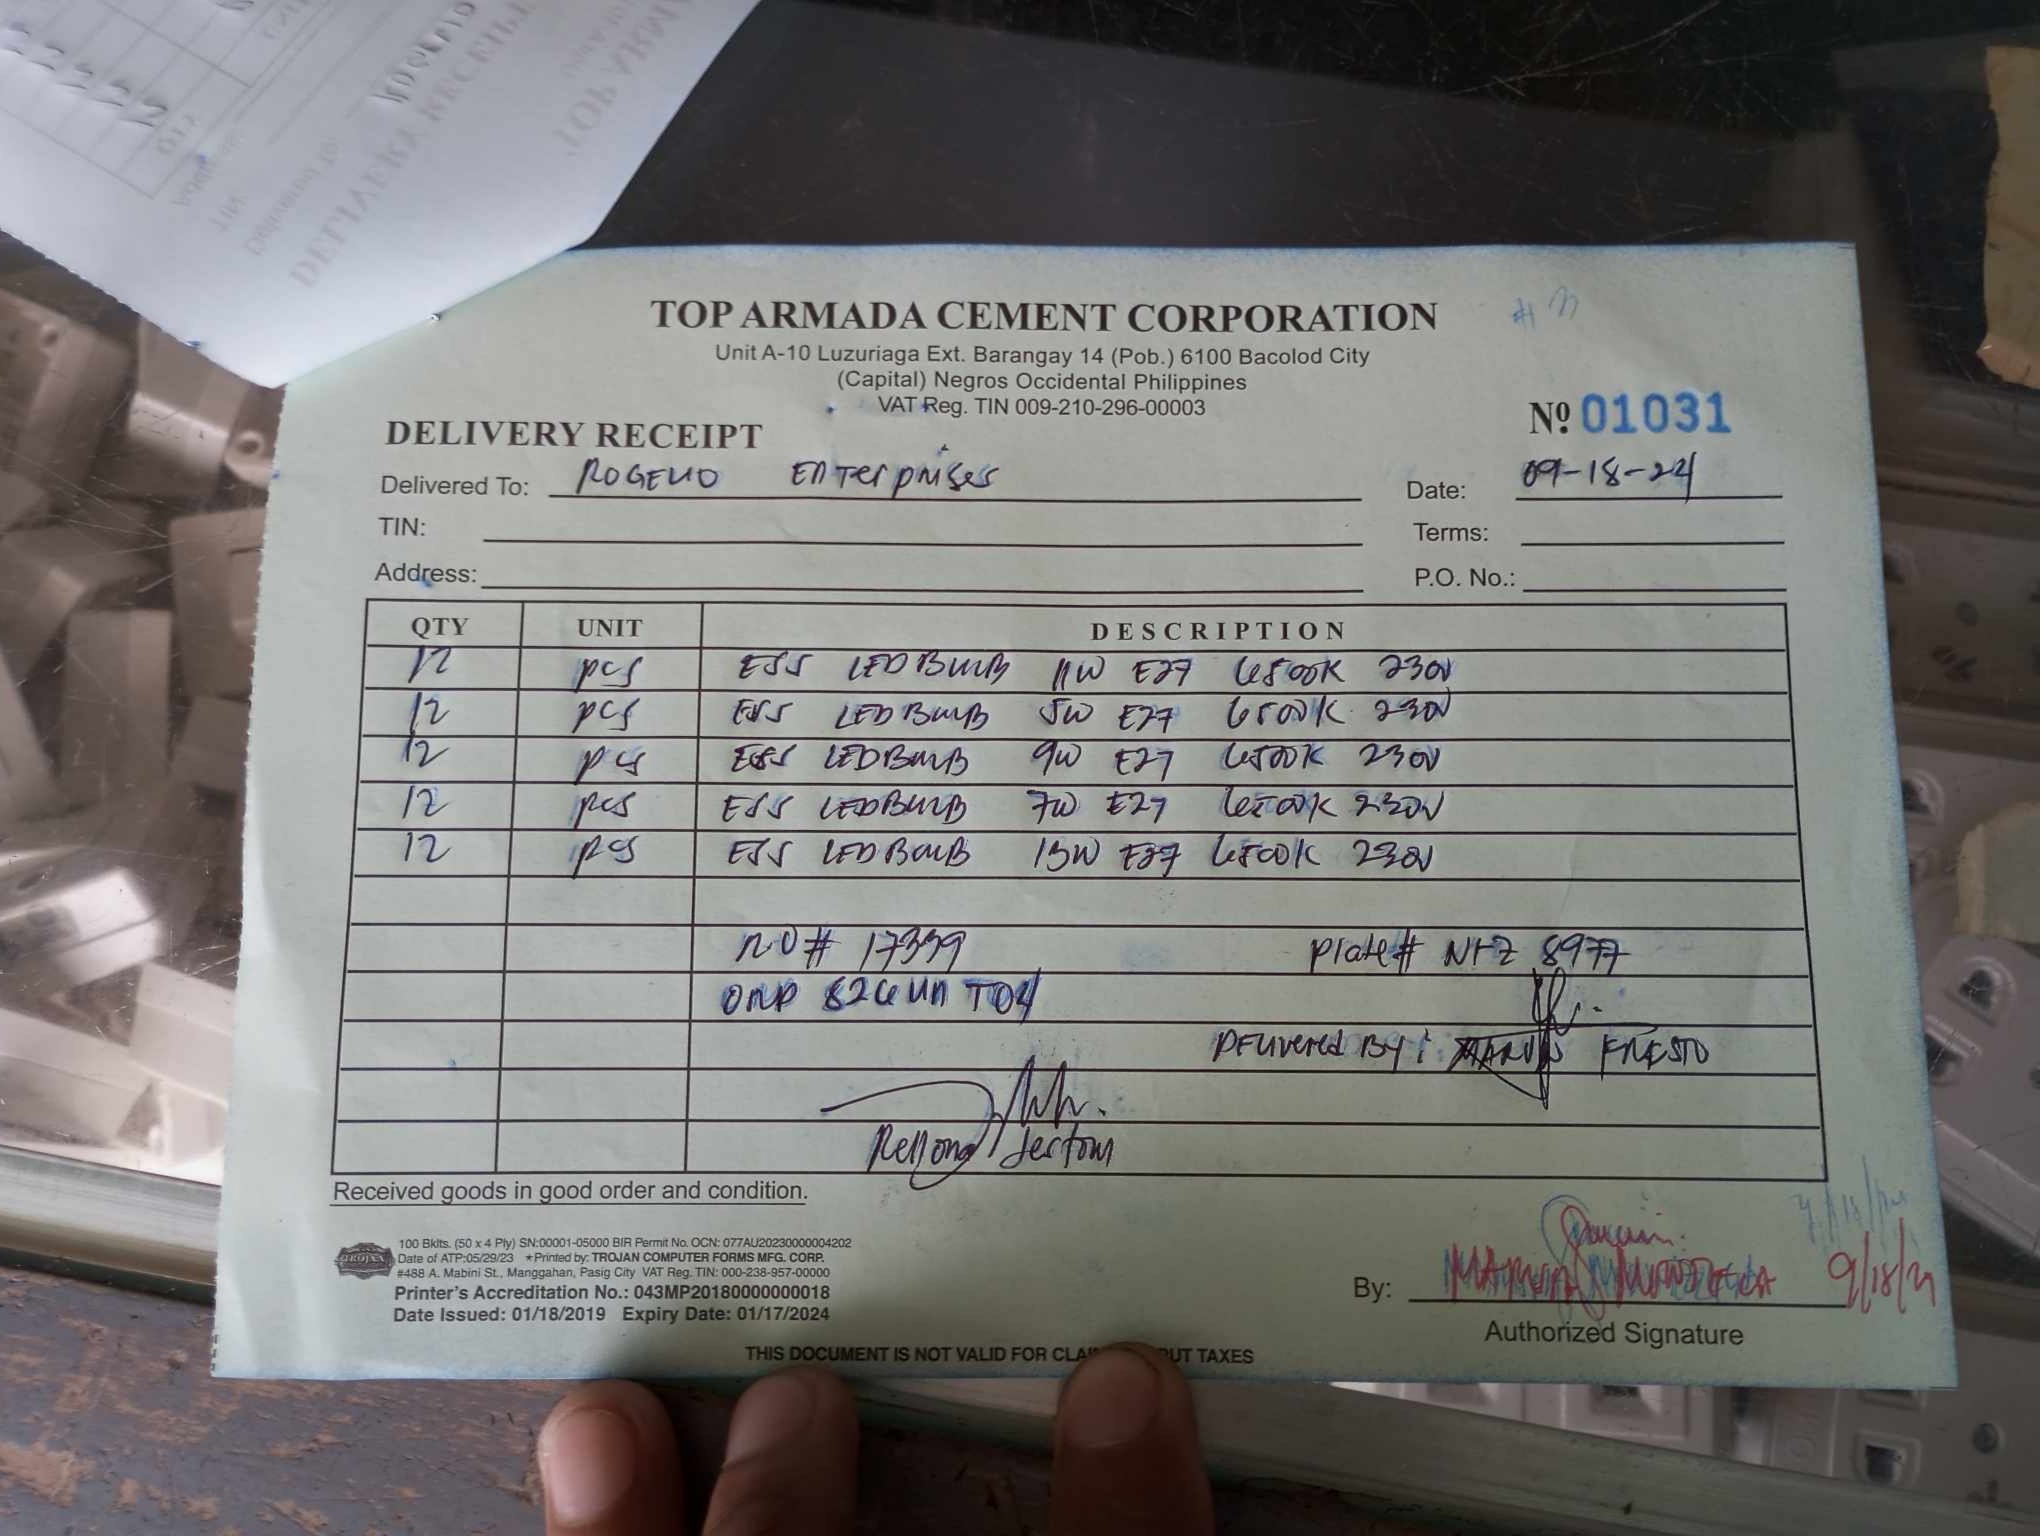 TOP ARMADA CEMENT CORPORATION
Unit A-10 Luzuriaga Ext. Barangay 14 (Pob.) 6100 Bacolod City
(Capital) Negros Occidental Philippines
VAT Reg. TIN 009-210-296-00003
Nº 01031
DELIVERY RECEIPT
Delivered To: Enterprises Date: 09-18-24
TIN: Terms:
Address: P.O. No.:
QTY UNIT DESCRIPTION
12 pcs ESS LED BULB 11W E27 6500K 230V
12 pcs ESS LED BULB 5W E27 6500K 230V
12 pcs ESS LED BULB 9W E27 6500K 230V
12 pcs ESS LED BULB 7W E27 6500K 230V
12 pcs ESS LED BULB 13W E27 6500K 230V
# 17339 Plate# 8977
Delivered By:
Received goods in good order and condition.
100 Bklts. (50 x 4 Ply) SN:00001-05000 BIR Permit No. OCN: 077AU20230000004202
TROJAN Date of ATP:05/29/23 ★Printed by: TROJAN COMPUTER FORMS MFG. CORP.
#488 A. Mabini St., Manggahan, Pasig City VAT Reg. TIN: 000-238-957-00000
Printer's Accreditation No.: 043MP20180000000018
Date Issued: 01/18/2019 Expiry Date: 01/17/2024
By: 9/18/24
Authorized Signature
THIS DOCUMENT IS NOT VALID FOR TAXES